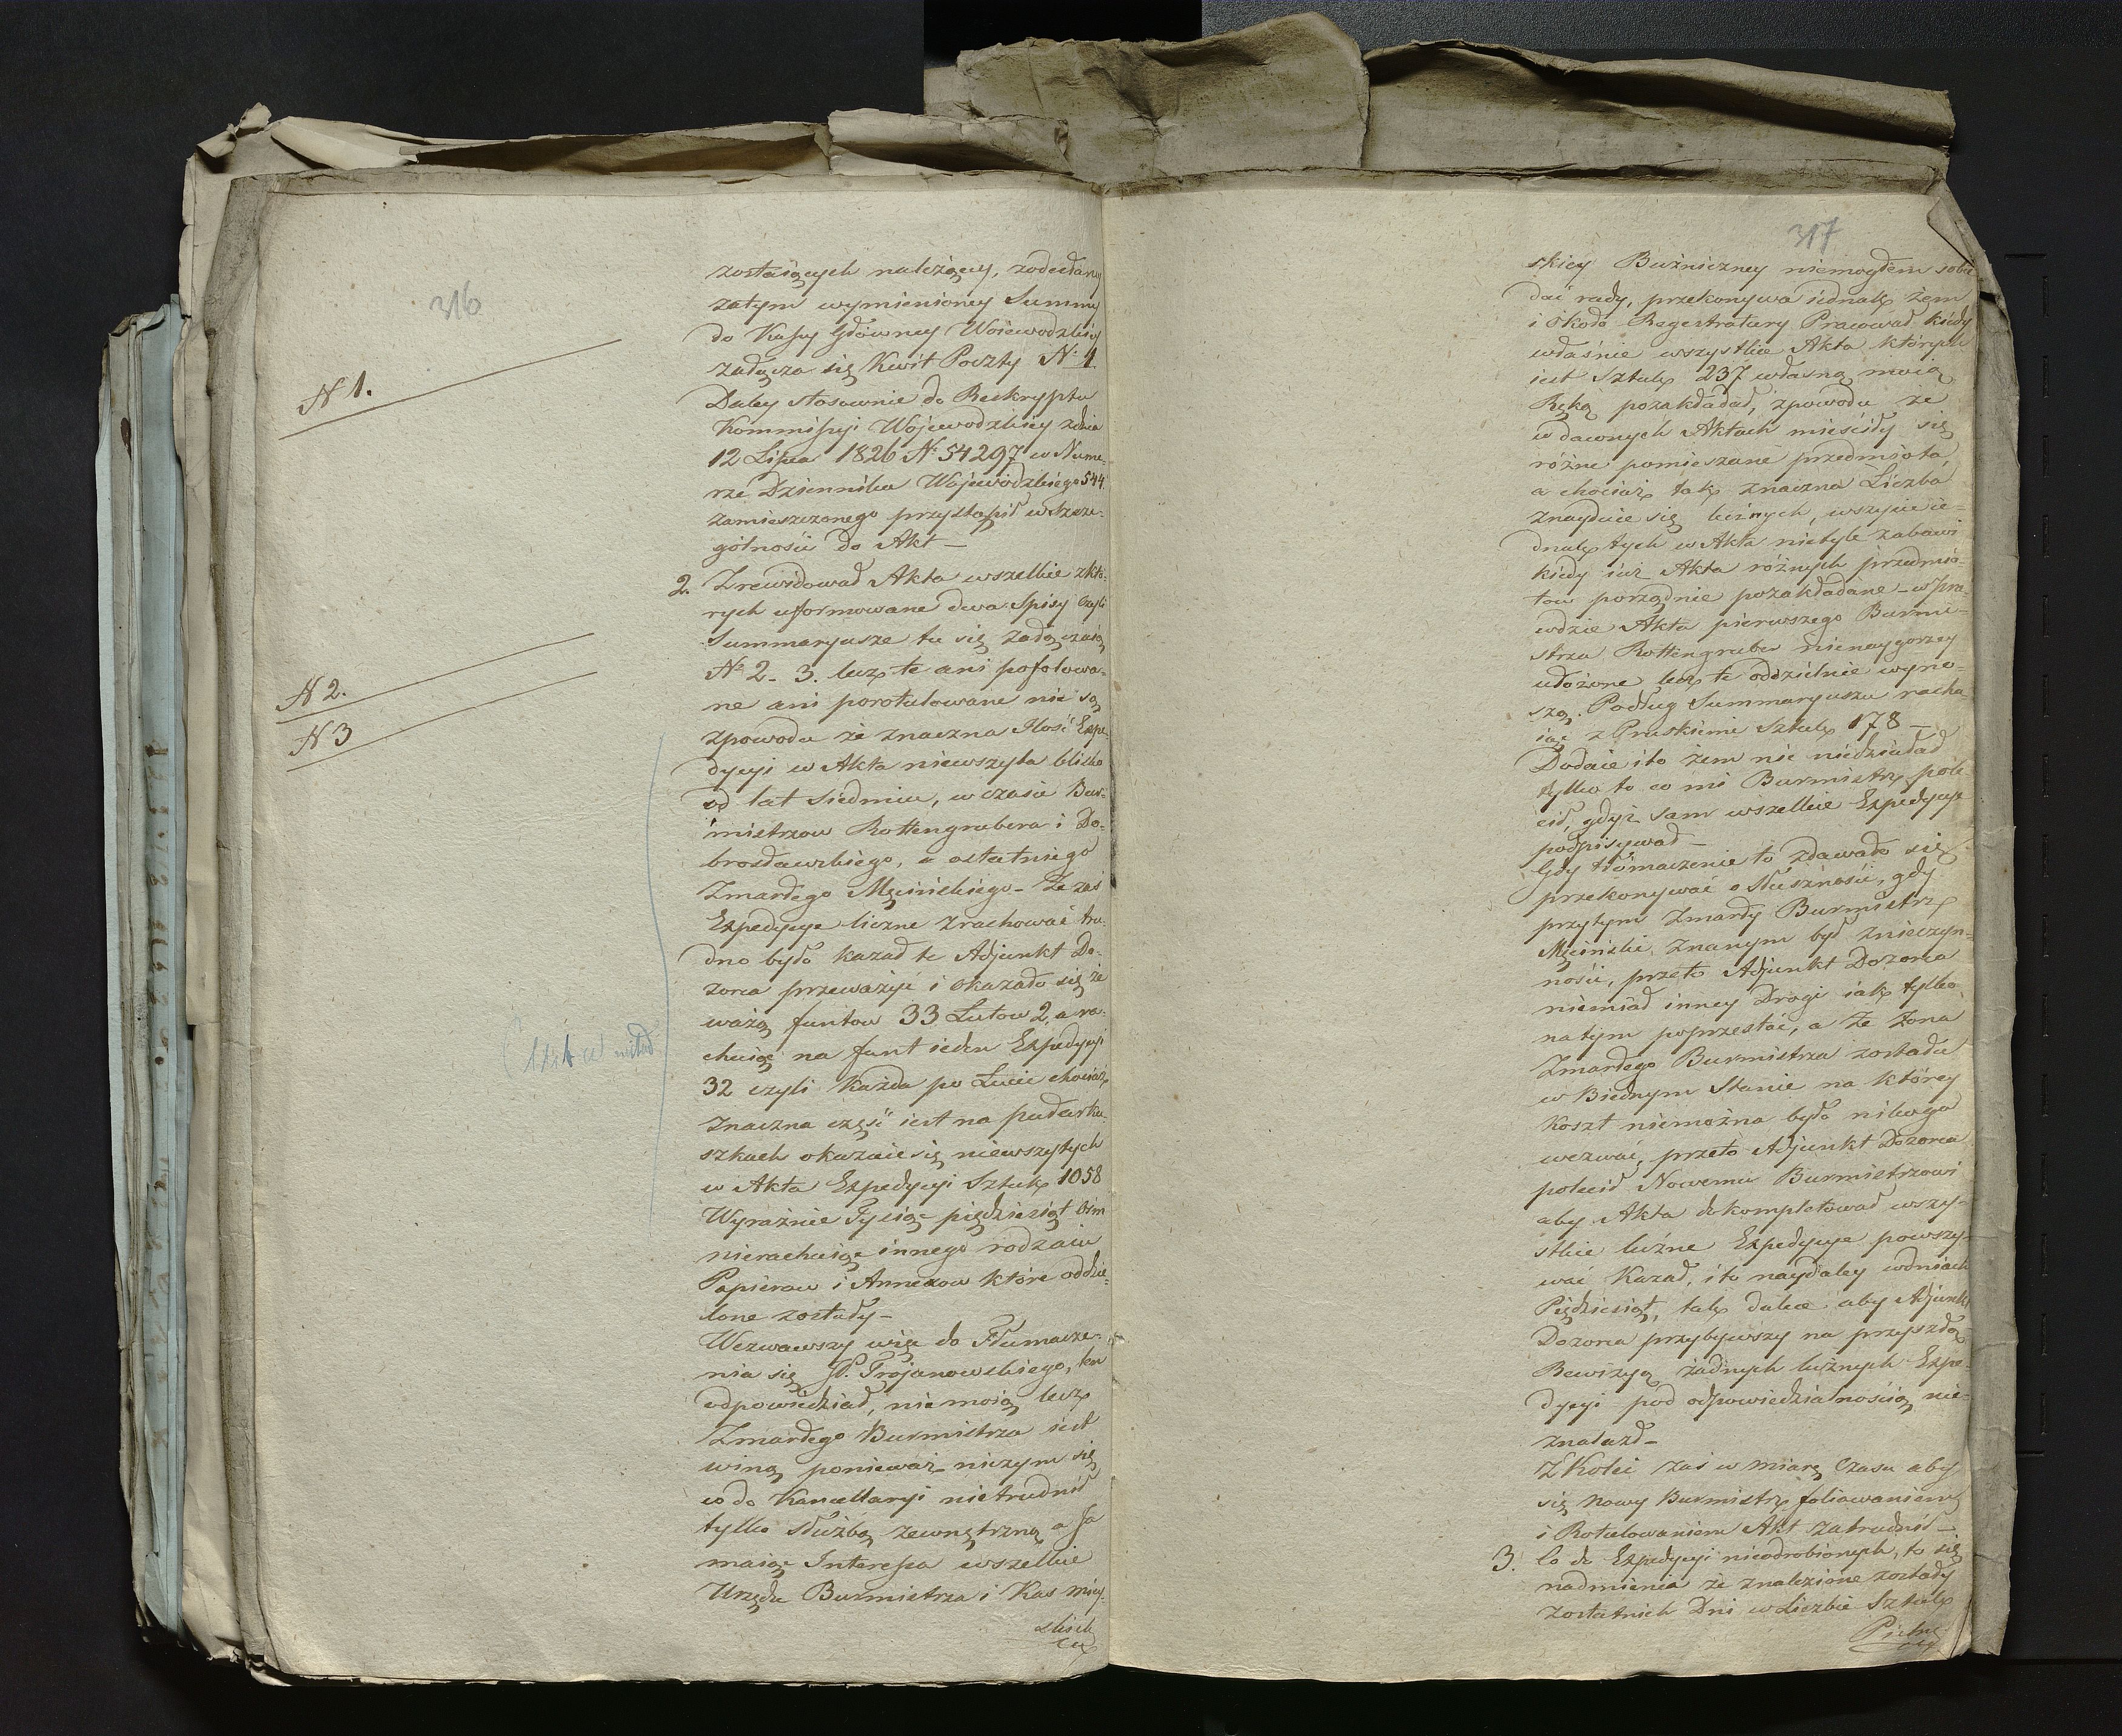 316
N 1.
N 2.
N 3
zostaiących należący, zodesłaney
zatym wymienioney Summy
do Kassy Główney Woiewodzkiey
załącza się Kwit Poczty N: 1
Daley stosownie do Reskryptu
Kommissyi Wojewodzkiey zdnia
12 Lipca 1826 N: 54297 w Nume-
rze Dziennika Wojewódzkiego 544
zamieszczonego przystąpił wszcze-
gólności do Akt _
2. Zrewidował Akta wszelkie zktó-
rych uformowane dwa Spisy czyli
Summaryusze tu się załączaią
No 2. 3. lecz te ani pofolowa-
ne ani porotulowane nie są
zpowodu że znaczna Ilość Expe-
dycyi w Akta niewszyta blisko
od lat siedmiu, w czasie Bur-
mistrzow Rottengrubera i Do-
brosławskiego, a ostatniego
Zmarłego Męcińskiego _ Że zaś
Expedycye liczne zrachować tru-
dno było kazał te Adjunkt Do-
zorca przeważyć i okazało się że
ważą funtow 33 Lutow 2, a ra-
chuiąc na funt ieden Expedycyi
32 czyli każda po Łucie chociaż
znaczna część iest na pułarku-
szkach okazuie się niewszytych
w Akta Expedycyi Sztuk 1058
Wyraźnie Tysiąc pięćdziesiąt ośm
nierachuiąc innego rodzaiu
Papierow i Annexow które oddzie-
lone zostały _
Wezwawszy więc do Tłumacze-
nia się JP. Trojanowskiego, ten
odpowiedział, nie moią lecz
Zmarłego Burmistrza iest
winą ponieważ niczym się
co do Kancellaryi nietrudnił
tylko służbą zewnętrzną a Ja
maiąc Interessa wszelkie
Urzędu Burmistrza i Kas miey-
skich
317
skiey Bużniczney niemogłem sobie
dać rady, przekonywa iednak żem
i około Regestratury Pracował kiedy
właśnie wszystkie Akta których
iest Sztuk 237 własną moią
Ręką pozakładał, zpowodu że
w dawnych Aktach mieściły się
różne pomieszane przedmiota
a chociaż tak znaczna Liczba
znayduie się luźnych, wszycie ie-
dnak tych w Akta nietyle zabawi
kiedy iuż Akta różnych przedmio-
tow porządnie pozakładane _ w pra-
wdzie Akta pierwszego Burmi-
strza Rottengruber nienaygorzey
ułożone lecz te oddzielnie wyno-
szą. Podług Summaryuszu racho-
iąc z Pruskiemi Sztuk 178 _
Dodaie i to żem nic niedziałał
tylko to co mi Burmistrz pole-
cił, gdyż sam wszelkie Expedycye
podpisywał _
Gdy tłómaczenie to zdawało się
przekonywać o słuszności, gdy
przytym Zmarły Burmistrz
Męciński znanym był znieczyn-
ności, przeto Adjunkt Dozorca
niemiał inney Drogi iak tylko
natym poprzestać, a że żona
Zmarłego Burmistrza została
w Biednym Stanie na którey
koszt niemożna było nikogo
wezwać, przeto Adjunkt Dozorca
polecił Nowemu Burmistrzowi
aby Akta dokompletował wszy-
stkie luźne Expedycye powszy-
wać Kazał, i to naydaley wdniach
Pięćdziesiąt, tak dalece aby Adjunkt
Dozorca przybywszy na przyszłą
Rewizyą żadnych luźnych Expe-
dycyi pod odpowiedzialnością nie-
znalazł _
Z Kolei zaś w miarę Czasu aby
się nowy Burmistrz foliowaniem
i Rotulowaniem Akt zatrudnił _
3. Co do Expedycyi nieodrobionych, to się
nadmienia że znalezione zostały
zostatnich Dni w Liczbie Sztuk